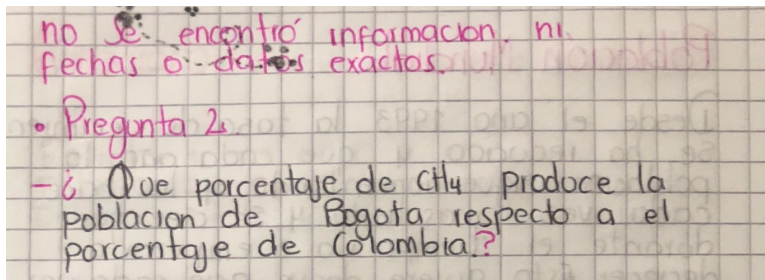 no se encontró informacion. ni
fechas o datos exactos.
• Pregunta 2.
- ¿ Que porcentaje de CH4 produce la
poblacion de Bogota respecto a el
porcentaje de Colombia.?